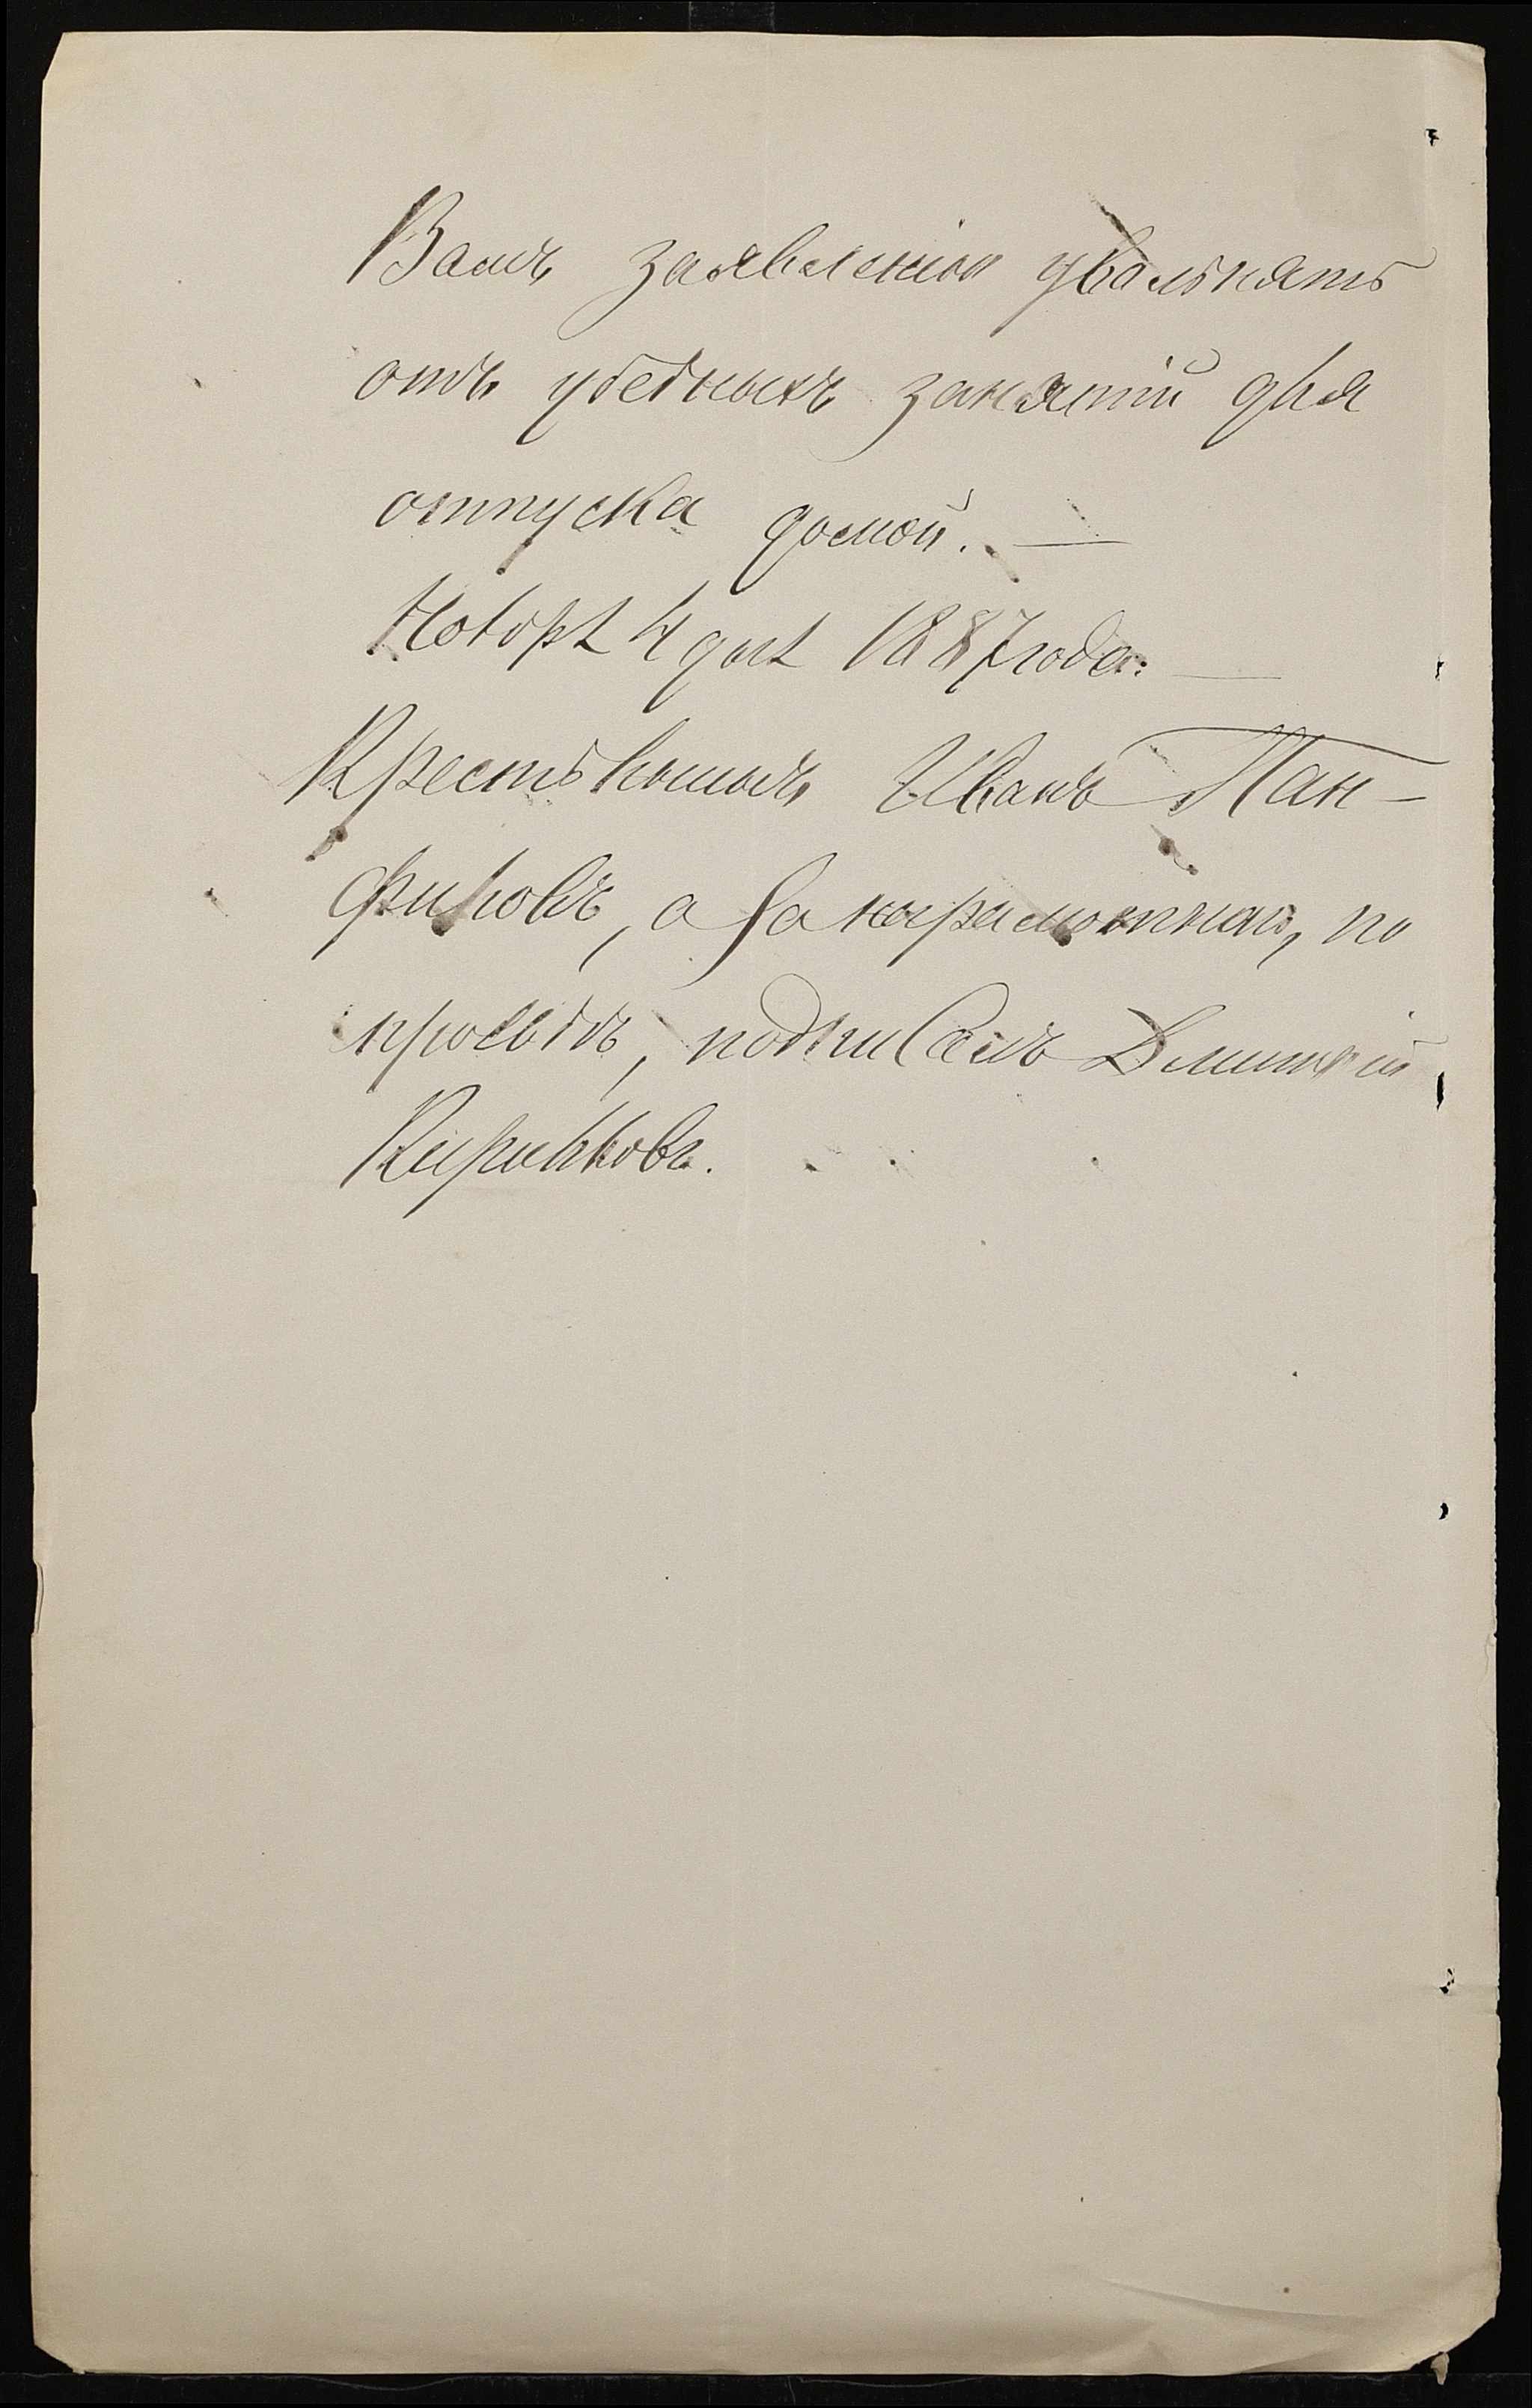 Вамъ заявленiи увольнять
отъ учебныхъ занятiй для
отпуска домой. —
Ноября 4 дня 1887 года. —
Крестьянинъ Иванъ Пан-
филовъ, а за неграмотнаго, по
просьбѣ, подписалъ Дмитрiй
Кирилловъ.